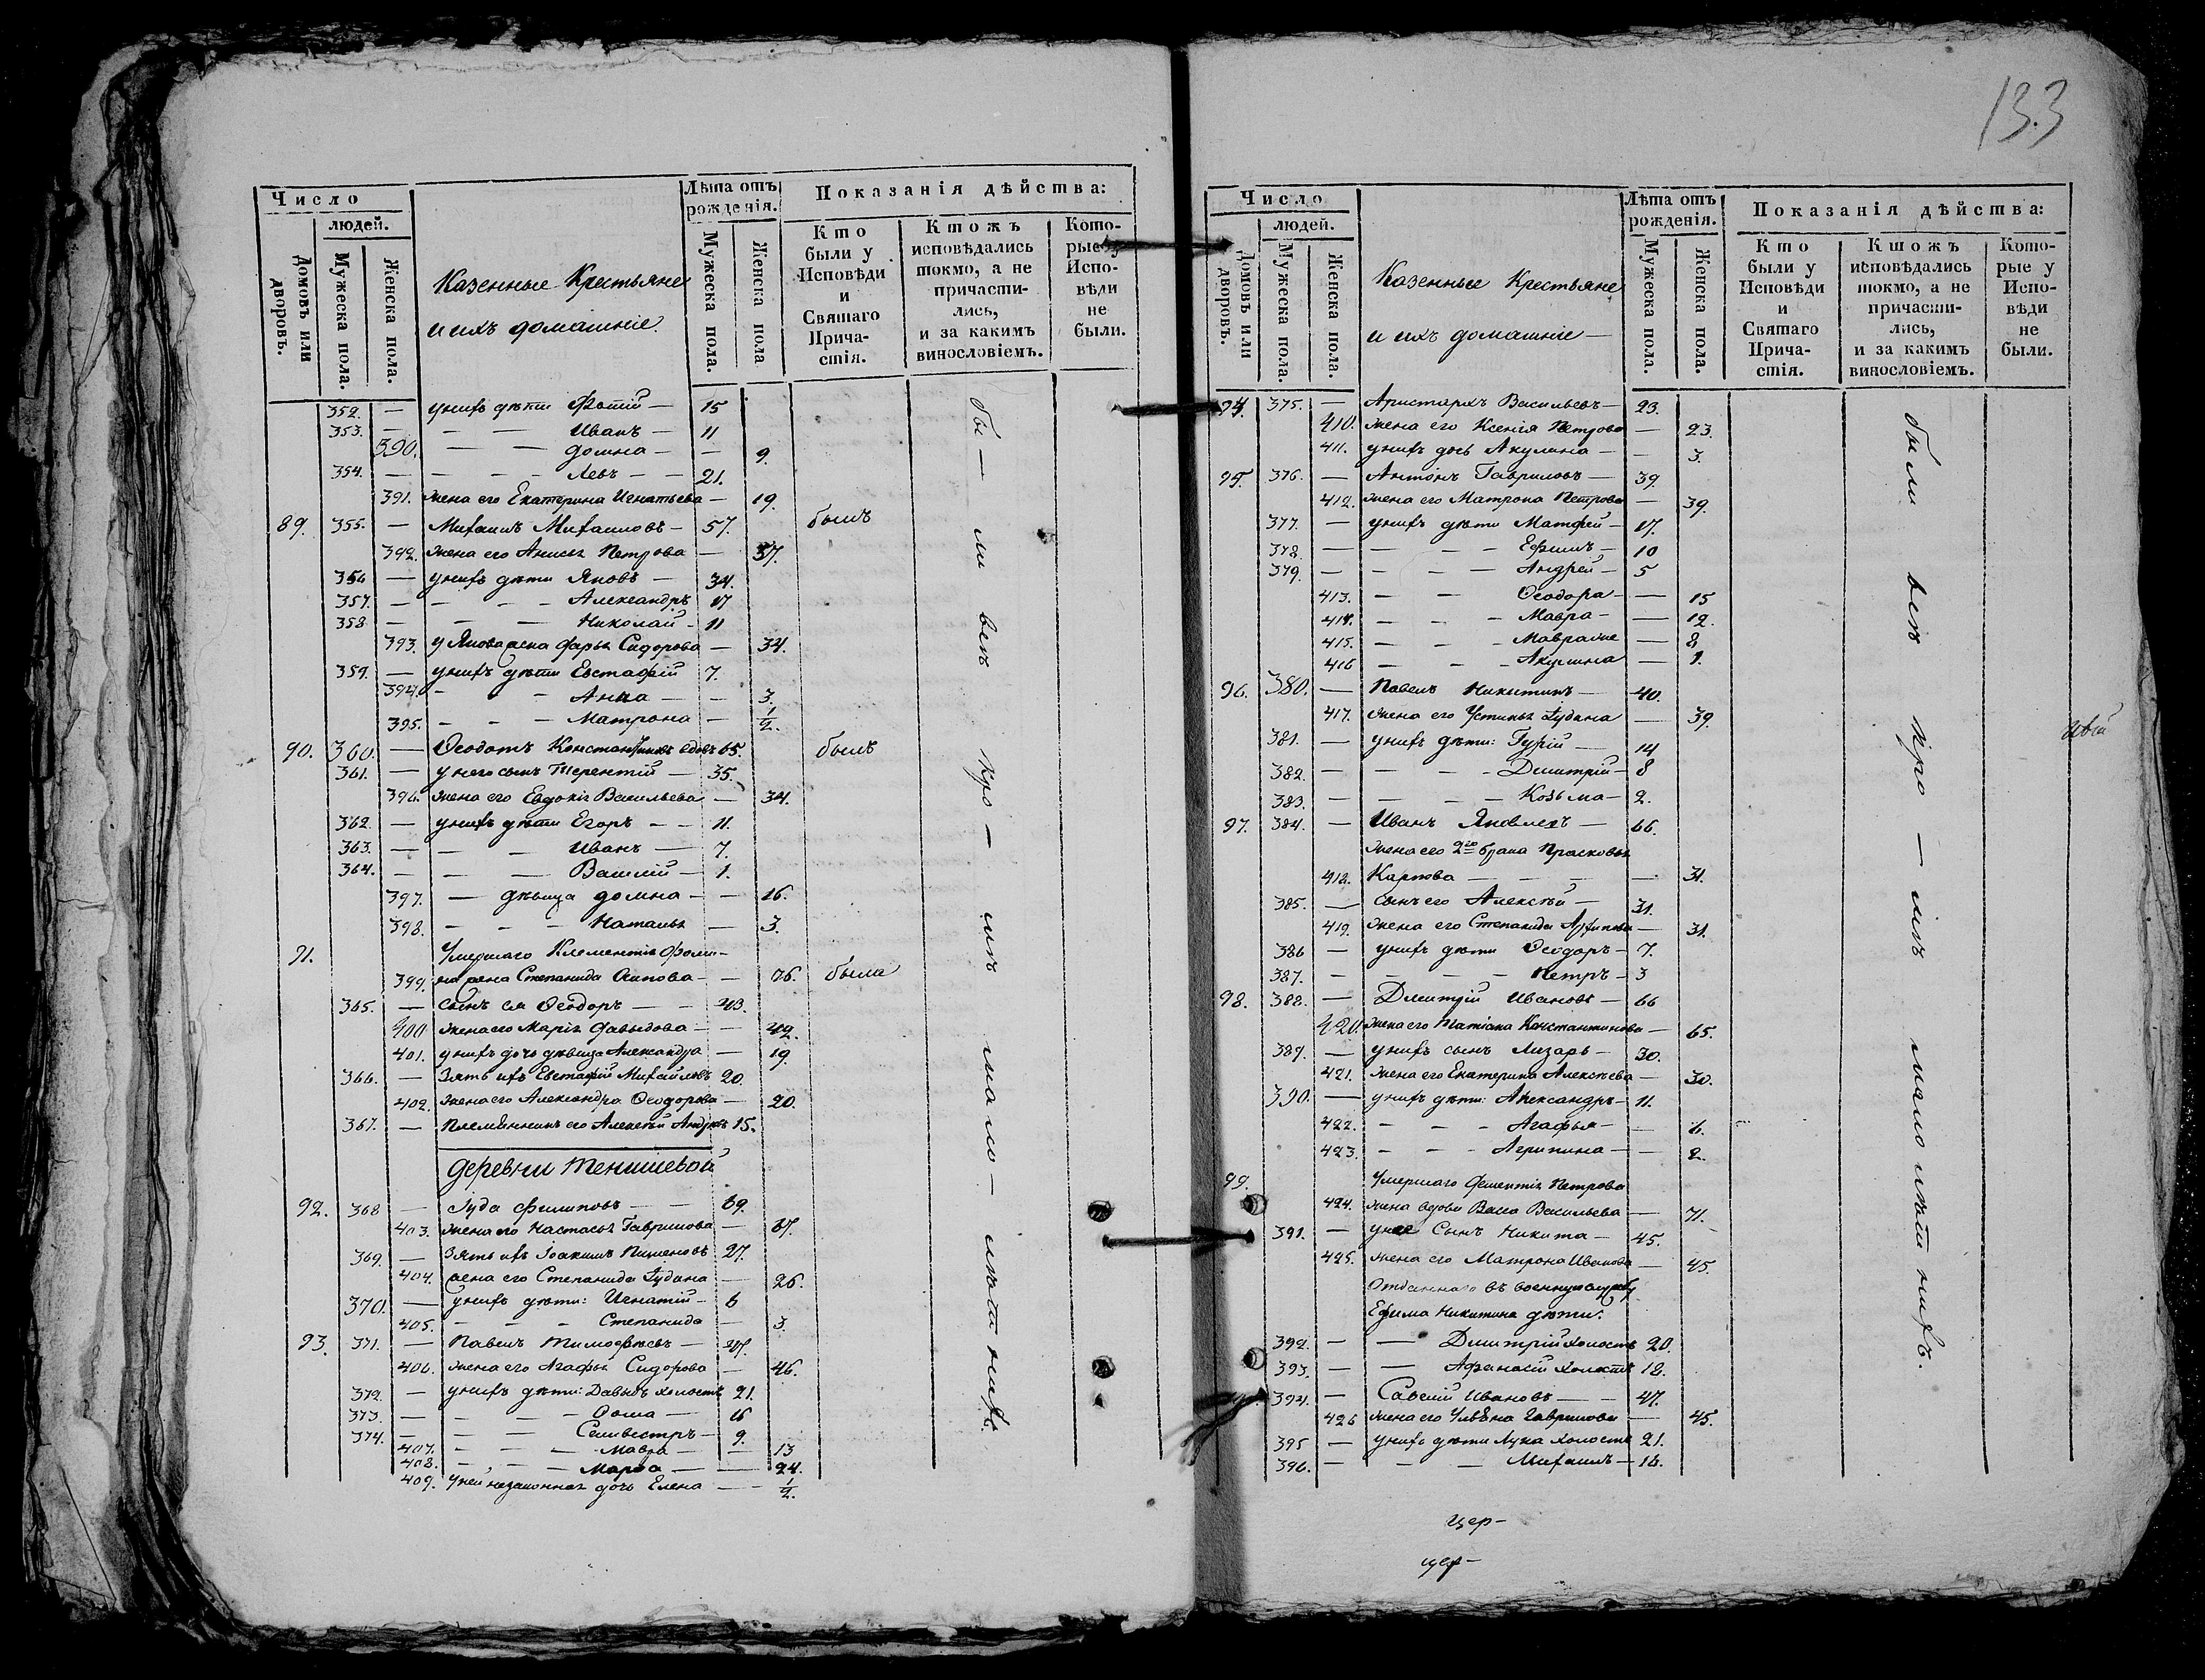 Число
людей.
Домовъ или дворовъ.
Мужеска пола.
Женска пола.
Казенные Крестьяне
и ихъ домашніе.
Лѣта отъ рожденія.
Мужеска пола.
Женска пола
Показанія дѣйства:
Кто были у Исповѣди и Святаго Причастія.
Ктожъ исповѣдались токмо, а не причастились, и за какимъ винословіемъ.
Которые у Исповѣди не были.
352. — у нихъ дѣти Фотій — 15
353. — — — Иванъ — 11
390. — — Домна — — 9.
354. — — — Левъ — — 21.
391. жена его Екатерина Игнатьева — 19.
89. 355. — Михаилъ Михаиловъ — 57. былъ
392. жена его Анисья Петрова — 57.
356 — у нихъ дѣти Яковъ — 34.
357. — — — Александръ 17
358 — — — Николай — 11
393. у Якова жена Дарья Сидорова — 34.
359. — у нихъ дѣти Евстафій 7.
394. — — Анна — — 3.
395. — — — Матрона — 1/2.
90. 360. — Ѳеодотъ Константиновъ вдовъ 65. былъ
361. — у него сынъ Терентій — 35.
396. жена его Евдокія Васильева — 34.
362. — у нихъ дѣти Егоръ — — 11.
363. — — — Иванъ — 7.
364. — — — Василій — 1.
397. — дѣвица Домна — — 16.
398. — — — Наталья — 3.
91. Умершаго Клементія Фоми-
399. на жена Степанида Осипова — — 76. была
365. — сынъ ея Ѳеодоръ — — 43.
400 жена его Марія Давыдова — — 42.
401. у нихъ дочь дѣвица Александра — 19.
366. — Зять ихъ Евстафій Михайловъ 20.
402. жена его Александра Ѳеодорова — 20.
367. — Племянникъ его Алексѣй Андреевъ 15.
деревни Тенишевой
92. 368 — Іуда Филиповъ — — 69.
403. жена его Настасья Гаврилова — 67.
369. — Зять ихъ Іоакимъ Пименовъ 27.
404. жена его Степанида Іудина — 26.
370. — у нихъ дѣти: Игнатій — 6
405. — — — Степанида — 3.
93. 371. — Павелъ Тимофѣевъ — 47.
406. жена его Агафья Сидорова — 46.
372. — у нихъ дѣти: Давыдъ холостъ 21.
373. — — — Ѳома — 16
374. — — — Селивестръ — 9.
407. — — — Мавра — — 13
408. — — — Марѳа — — 24.
409. У ней незаконная дочь Елена — — 1/2.
бы — ли всѣ кро — мѣ мало — лѣтнихъ.
133
Число
людей.
Домовъ или дворовъ.
Мужеска пола.
Женска пола.
Казенные Крестьяне
и ихъ домашніе —
Лѣта отъ рожденія.
Мужеска пола.
Женска пола.
Показанія дѣйства:
Кто были у Исповѣди и Святаго Причастія.
Ктожъ исповѣдались токмо, а не причастились, и за какимъ винословіемъ.
Которые у Исповѣди не были.
94. 375. — Аристархъ Васильевъ — 23.
410. жена его Ксенія Петрова — 23.
411. у нихъ дочь Акулина — — 3.
95. 376. — Антонъ Гавриловъ — 39.
412. жена его Матрона Петрова — 39.
377. — у нихъ дѣти Матфей — 17.
378. — — — — Ефимъ — 10
379. — — — — Андрей — 5
413. — — Ѳеодора — — 15
414. — — — Мавра — — 12.
415. — — — Мавра — 8
416 — — — Акулина — 1.
96. 380. — Павелъ Никитинъ — 40.
417. жена его Устинья Іудина — 39.
381. — у нихъ дѣти: Гурій — 14
382. — — — — Дмитрій — 8
383. — — — — Козьма — 2.
97. 384. — Иванъ Яковлевъ — 66.
жена его 2го брака Прасковья
418. Карпова — — — — 31.
385. — сынъ его Алексѣй — 31.
419. жена его Степанида Архипова — 31.
386 — у нихъ дѣти Ѳеодоръ — 7.
387. — — — — Петръ — 3
98. 388. — Дмитрій Ивановъ — 66
420. жена его Татіана Константинова — 65.
389. — у нихъ сынъ Лазарь — 30.
421. жена его Екатерина Алексѣева — 30.
390. — у нихъ дѣти: Александръ — 11.
422. — — — Агафья — — 6.
423. — — — Агрипина — — 2.
99. Умершаго Петрова
424. жена вдова Васса Васильева — 71.
391. — у нее Сынъ Никита — 45.
425. жена его Матрона Иванова — 45.
Отданнаго въ военную службу
Ефима Никитина дѣти.
392. — — Дмитрій холостъ 20.
393. — — Афанасій холостъ 18.
394. — Савелій Ивановъ — — 47.
426 жена его Ульяна Гаврилова — 45.
395 — у нихъ дѣти Лука холостъ 21.
396. — — — Михаилъ — 16.
были всѣ кро — мѣ малолѣтнихъ.
цер-
цер-